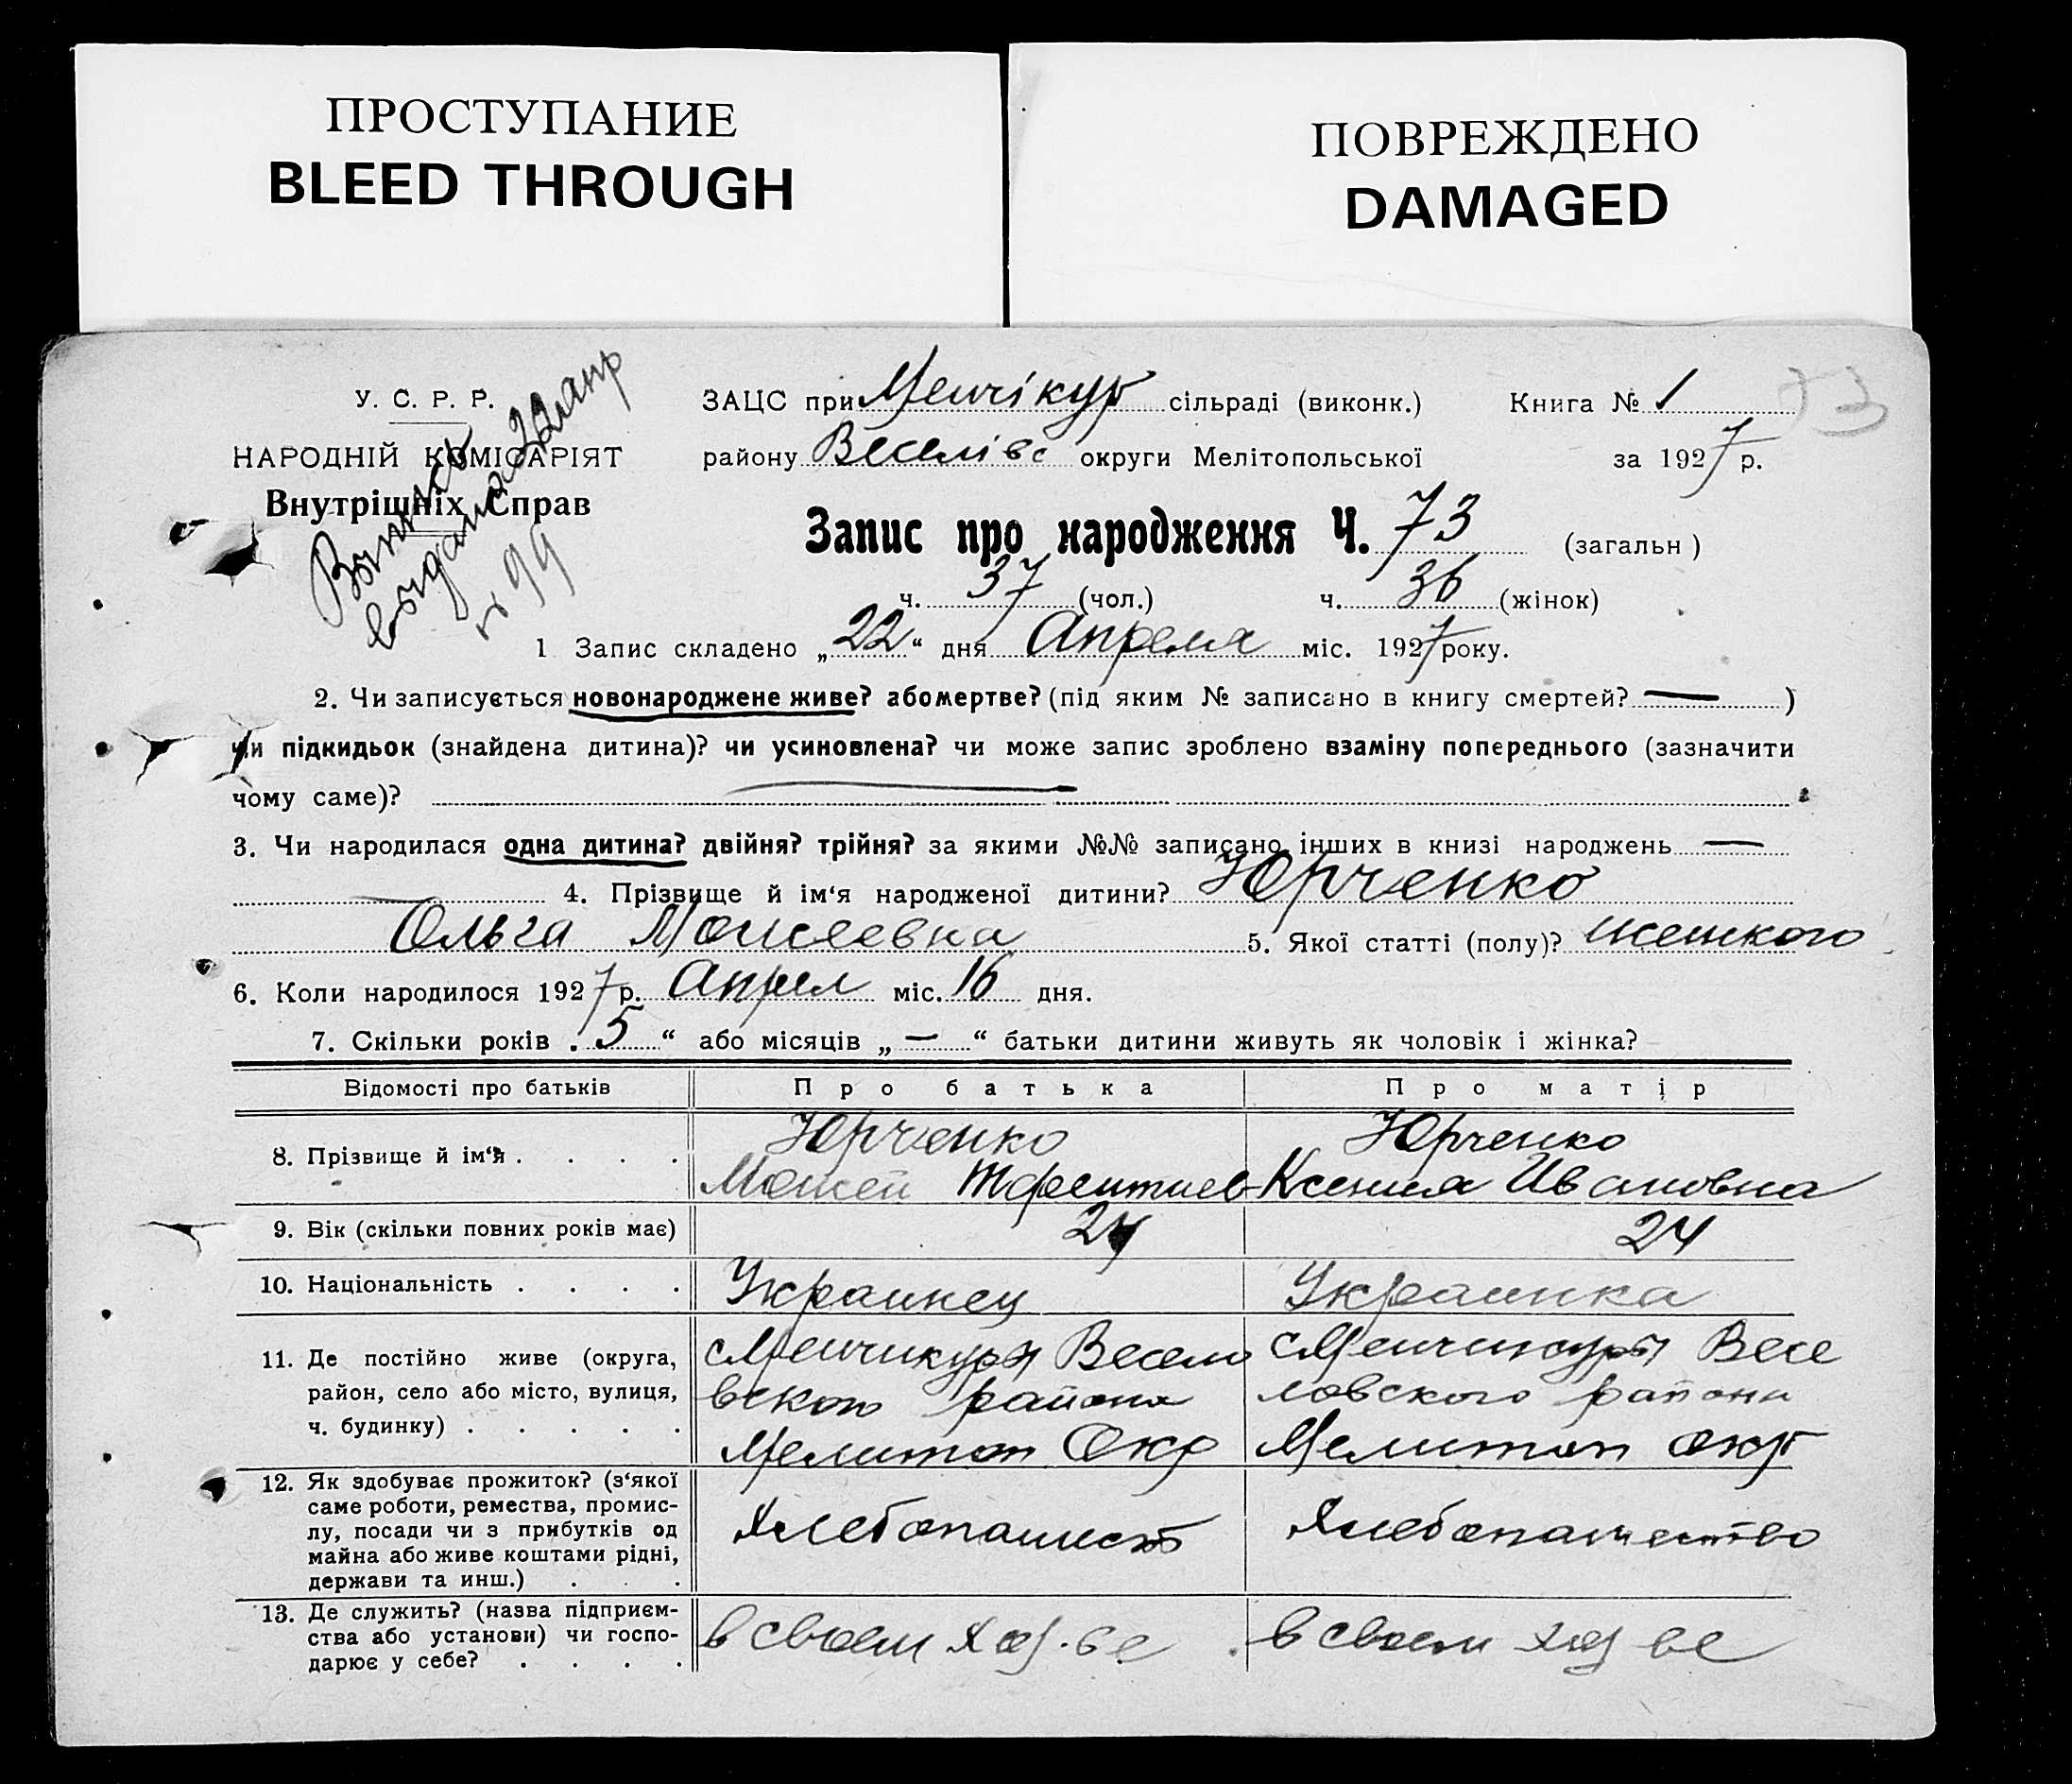 ПРОСТУПАНИЕ
BLEED THROUGH
ПОВРЕЖДЕНО
DAMAGED
У. С. Р. Р.
НАРОДНІЙ КОМІСАРІЯТ
Внутрішніх Справ
Выпись
выдана 22 апр
№ 99
ЗАЦС при Менчікур сільраді (виконк.) Книга № 1
73
району Веселівс округи Мелітопольської за 1927 р.
Запис про народження Ч. 73 (загальн)
ч. 37 (чол.) ч. 36 (жінок)
1 Запис складено „22“ дня Апреля міс. 1927 року.
2. Чи записується новонароджене живе? або мертве? (під яким № записано в книгу смертей? — )
чи підкидьок (знайдена дитина)? чи усиновлена? чи може запис зроблено взаміну попереднього (зазначити
чому саме)? —
3. Чи народилася одна дитина? двійня? трійня? за якими №№ записано інших в книзі народжень —
— 4. Прізвище й ім‘я народженої дитини? Юрченко
Ольга Моисеевна 5. Якої статті (полу)? женского
6. Коли народилося 1927 р. Апрел міс. 16 дня.
7. Скільки років . 5 “ або місяців „ — “ батьки дитини живуть як чоловік і жінка?
Відомості про батьків Про батька Про матір
8. Прізвище й ім‘я . . . . Юрченко Юрченко
Моисей Терентиев Ксения Ивановна
9. Вік (скільки повних років має) 24 24
10. Національність . . . . Украинец Украинка
11. Де постійно живе (округа,
район, село або місто, вулиця,
ч. будинку) . . . . .
с Менчикуры Весело
вского района
Мелитоп Окр
с Менчикуры Весе
ловского района
Мелитоп окр
12. Як здобуває прожиток? (з‘якої
саме роботи, ремества, промис-
лу, посади чи з прибутків од
майна або живе коштами рідні,
держави та инш.) . . .
Хлебопашест
Хлебопашество
13. Де служить? (назва підприєм-
ства або установи) чи госпо-
дарює у себе? . . . .
в своем хоз-ве
в своем хоз ве